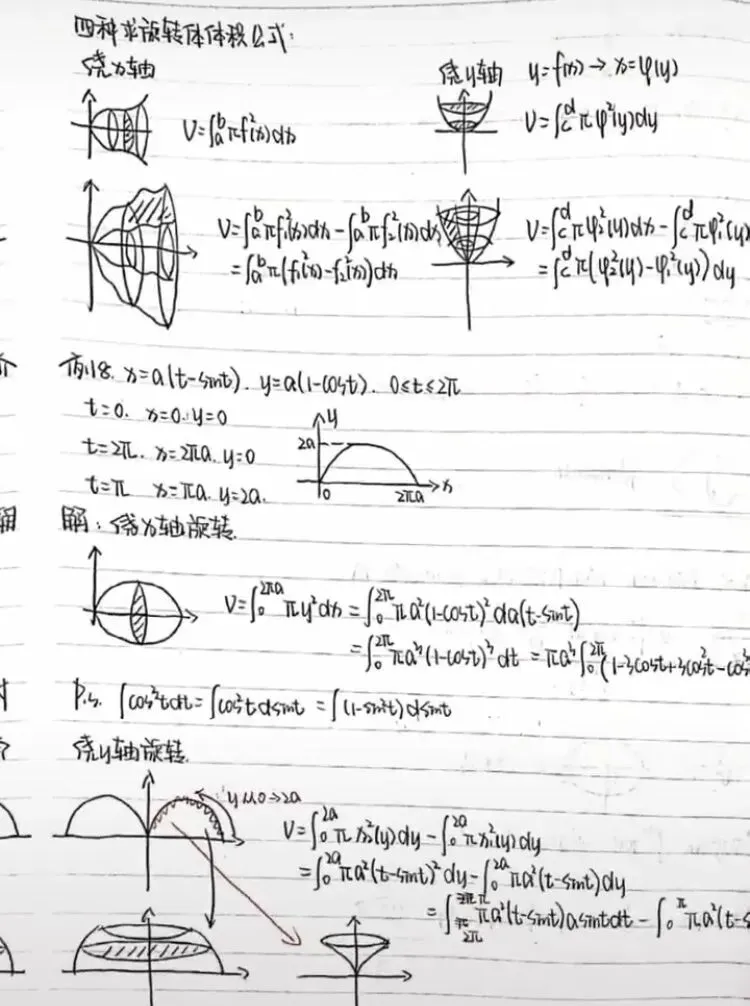 四种求旋转体体积公式:
绕x轴
绕y轴 y=f(x)→x=φ(y)
V=∫ₐᵇπf²(x)dx
V=∫_c^d πφ²(y)dy
V=∫ₐᵇπf₁²(x)dx-∫ₐᵇπf₂²(x)dx
=∫ₐᵇπ(f₁²(x)-f₂²(x))dx
V=∫_c^d πφ₂²(y)dx-∫_c^d πφ₁²(y)
=∫_c^d π(φ₂²(y)-φ₁²(y))dy
例18. x=a(t-sint). y=a(1-cost). 0≤t≤2π
t=0. x=0. y=0
t=2π. x=2πa. y=0
t=π x=πa. y=2a.
y
2a
0 2πa x
解: 绕x轴旋转.
V=∫₀^{2πa}πy²dx=∫₀^{2π}πa²(1-cost)²da(t-sint)
=∫₀^{2π}πa³(1-cost)³dt=πa³∫₀^{2π}(1-3cost+3cos²t-cos³
P.s. ∫cos³tdt=∫cos²tdsint=∫(1-sin²t)dsint
绕y轴旋转.
y从0→2a
V=∫₀^{2a}πx₂²(y)dy-∫₀^{2a}πx₁²(y)dy
=∫₀^{2a}πa²(t-sint)²dy-∫₀^{2a}πa²(t-sint)dy
=∫_{2π}^{π}πa²(t-sint)asintdt-∫₀^{π}πa²(t-s